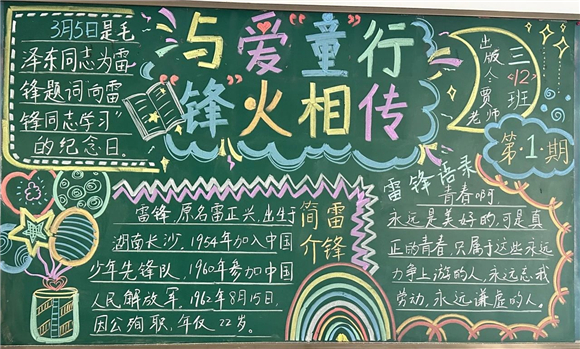 3月5日是毛
泽东同志为雷
锋题词"向雷
锋同志学习"
的纪念日。
与爱"童"行
"锋"火相传
三<12>班
出版人:贾老师
第·1·期
雷锋简介
雷锋,原名雷正兴,出生于
湖南长沙,1954年加入中国
少年先锋队,1960年参加中国
人民解放军,1962年8月15日,
因公殉职,年仅22岁。
雷锋语录
青春啊,
永远是美好的,可是真
正的青春,只属于这些永远
力争上游的人,永远忘我
劳动,永远谦虚的人。